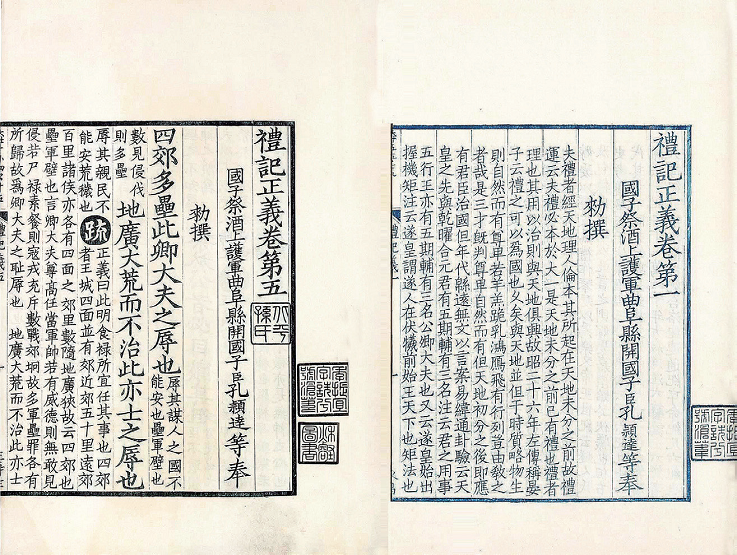 禮記正義卷第一
國子祭酒上護軍曲阜縣開國子臣孔穎達等奉
勑撰
夫禮者經天地理人倫本其所起在天地未分之前故禮
運云夫禮必本於大一是天地未分之前已有禮也禮者
理也其用以治則與天地俱興故昭二十六年左傳稱晏
子云禮之可以為國也乆矣與天地並但于時質略物生
則自然而有尊卑若羊羔跪乳鴻鴈飛有行列豈由敎之
者哉是三才旣判尊卑自然而有但天地初分之後即應
有君臣治國但年代縣遠無文以言案易緯通卦驗云天
皇之先與乾曜合元君有五期輔有三名注云君之用事
五行王亦有五期輔有三名公卿大夫也又云遂皇始出
握機矩注云遂皇謂遂人在伏犧前始王天下也矩法也
禮記正義卷第五
國子祭酒上護軍曲阜縣開國子臣孔穎達等奉
勑撰
四郊多壘此卿大夫之辱也
辱其謀人之國不
能安也壘軍壁也
數見侵伐
則多壘
地廣大荒而不治此亦士之辱也
辱其親民不
能安荒穢也
疏
正義曰此明食祿所宜任其事也四郊
者王城四面並有郊近郊五十里遠郊
百里諸侯亦各有四面之郊里數隨地廣狹故云四郊也
壘軍壁也言卿大夫尊高任當軍帥若有威德則無敢見
侵若尸祿素餐則寇戎充斥數戰郊坰故多軍壘罪各有
所歸故為卿大夫之耻辱也 地廣大荒而不治此亦士